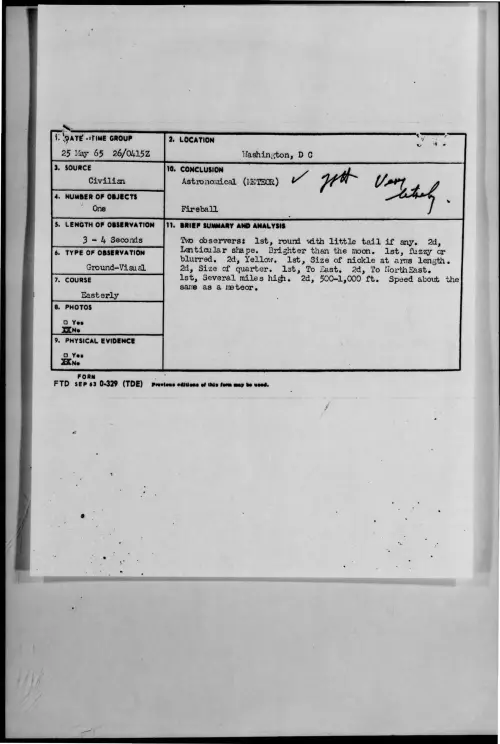 1. DATE - TIME GROUP
25 May 65 26/0415Z
2. LOCATION
Washington, D C
3. SOURCE
Civilian
10. CONCLUSION
Astronomical (METEOR) ✓ Very likely.
Fireball
4. NUMBER OF OBJECTS
One
5. LENGTH OF OBSERVATION
3 - 4 Seconds
11. BRIEF SUMMARY AND ANALYSIS
Two observers: 1st, round with little tail if any. 2d,
Lenticular shape. Brighter than the moon. 1st, fuzzy or
blurred. 2d, Yellow. 1st, Size of nickle at arms length.
2d, Size of quarter. 1st, To East. 2d, To NorthEast.
1st, Several miles high. 2d, 500-1,000 ft. Speed about the
same as a meteor.
6. TYPE OF OBSERVATION
Ground-Visual
7. COURSE
Easterly
8. PHOTOS
□ Yes
XX No
9. PHYSICAL EVIDENCE
□ Yes
XX No
FORM
FTD SEP 63 0-329 (TDE) Previous editions of this form may be used.